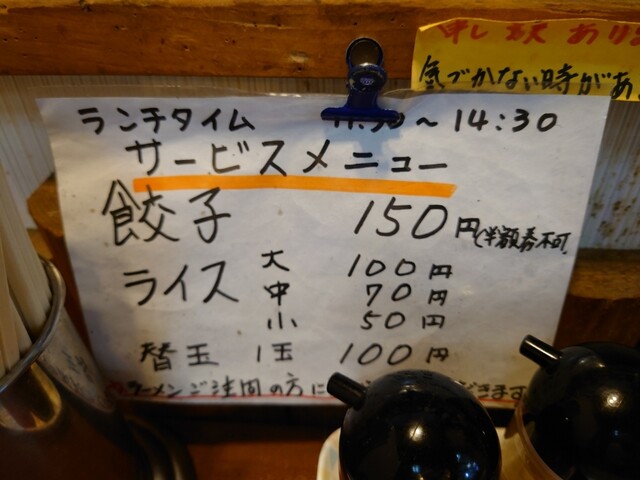 申し訳あり
気づかない時があ
ランチタイム 11:30〜14:30
サービスメニュー
餃子 150円(半額券不可)
ライス 大 100円
中 70円
小 50円
替玉 1玉 100円
ラーメンご注文の方に
できます